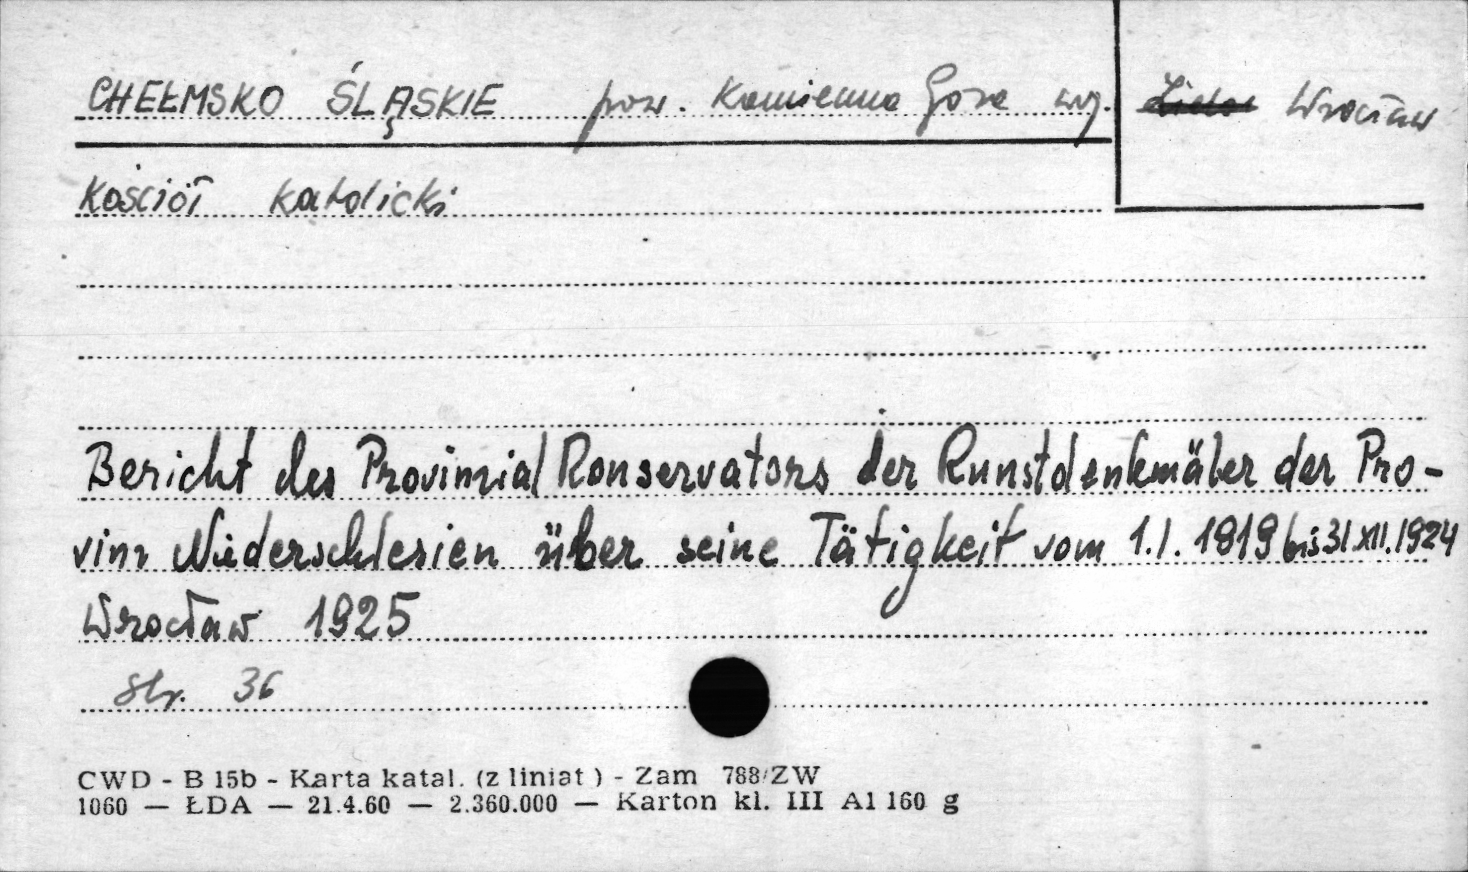 CHEŁMSKO ŚLĄSKIE pow. Kamienna Góra woj. Wrocław
Kościół katolicki
Bericht des Provinzial Konservators der Kunstdenkmäler der Pro-
vinz Niederschlesien über seine Tätigkeit vom 1.I. 1919 bis 31.XII.1924
Wrocław 1925
str. 36
CWD - B 15b - Karta katal. (z liniat ) - Zam 788/ZW
1060 — ŁDA — 21.4.60 — 2.360.000 — Karton kl. III A1 160 g